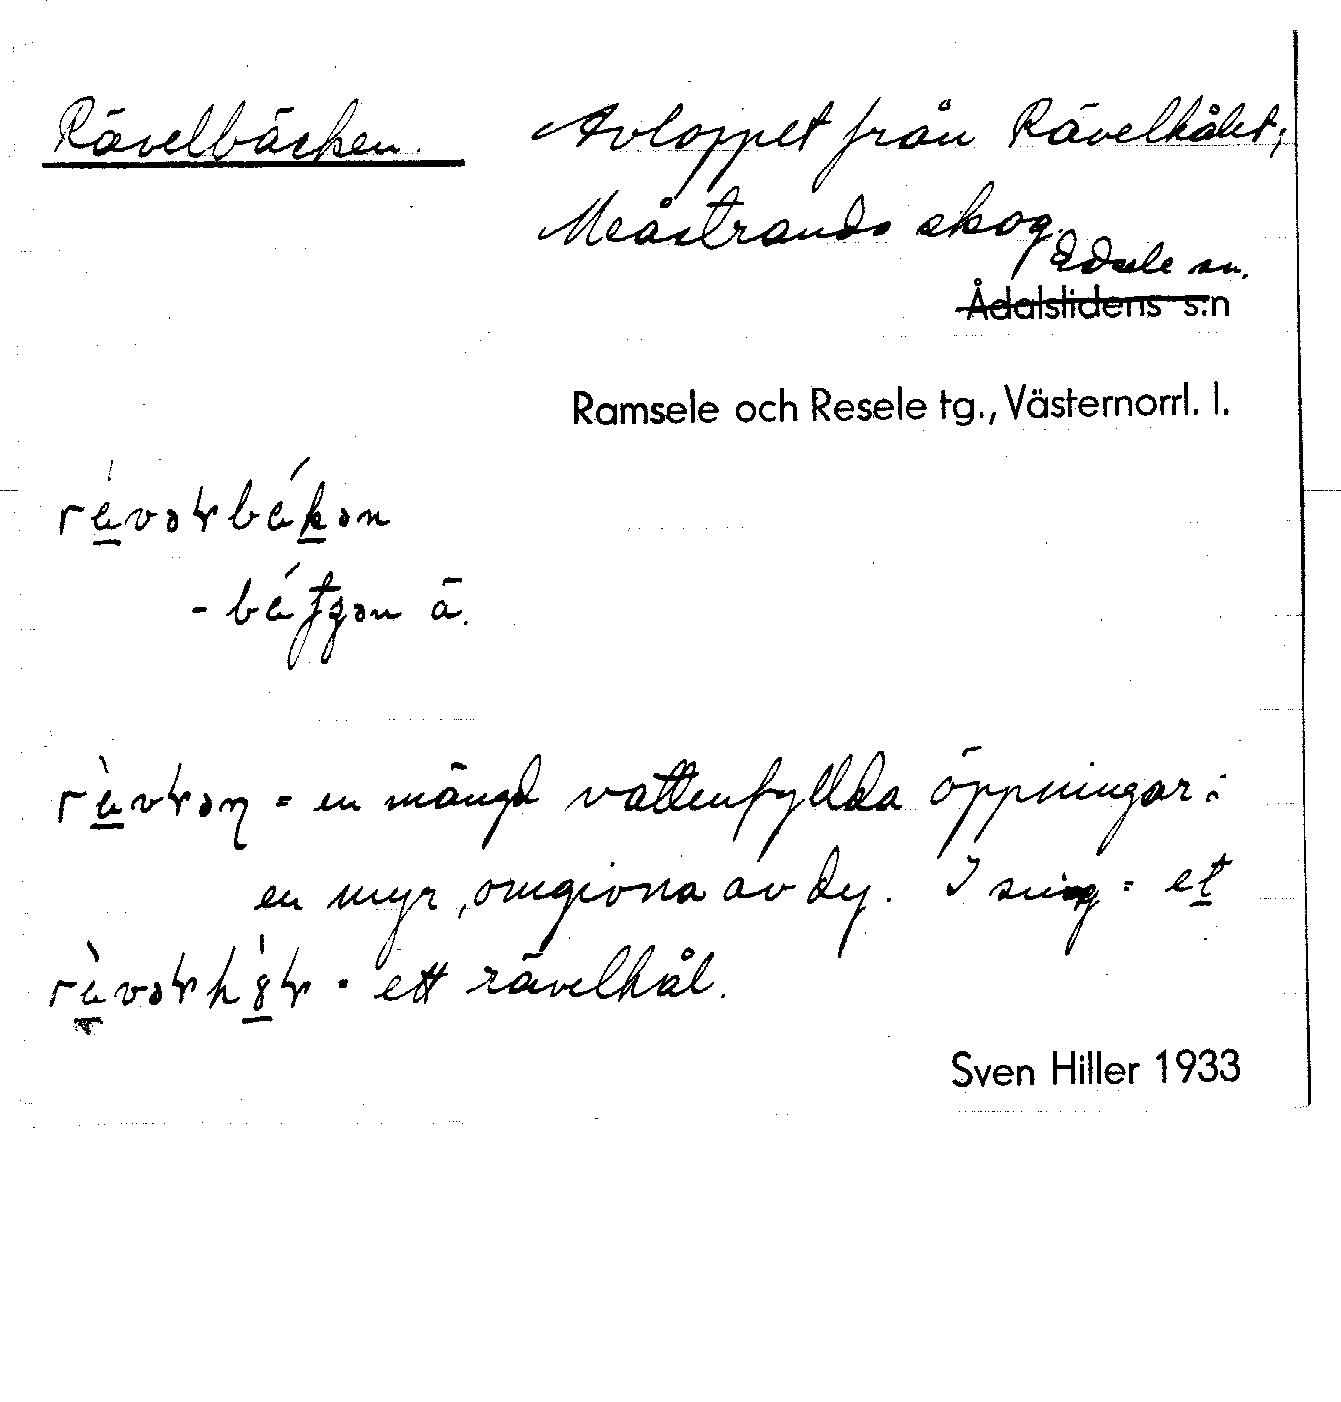 Rävelbäcken. Avloppet från Rävelhålet,
Meåstrands skog.
Edsele sn.
Ådalslidens s:n
Ramsele och Resele tg., Västernorrl. l.
- ä.
= en mängd vattenfyllda öppningar i
en myr, omgivna av dy. I sing = et
= ett rävelhål.
Sven Hiller 1933